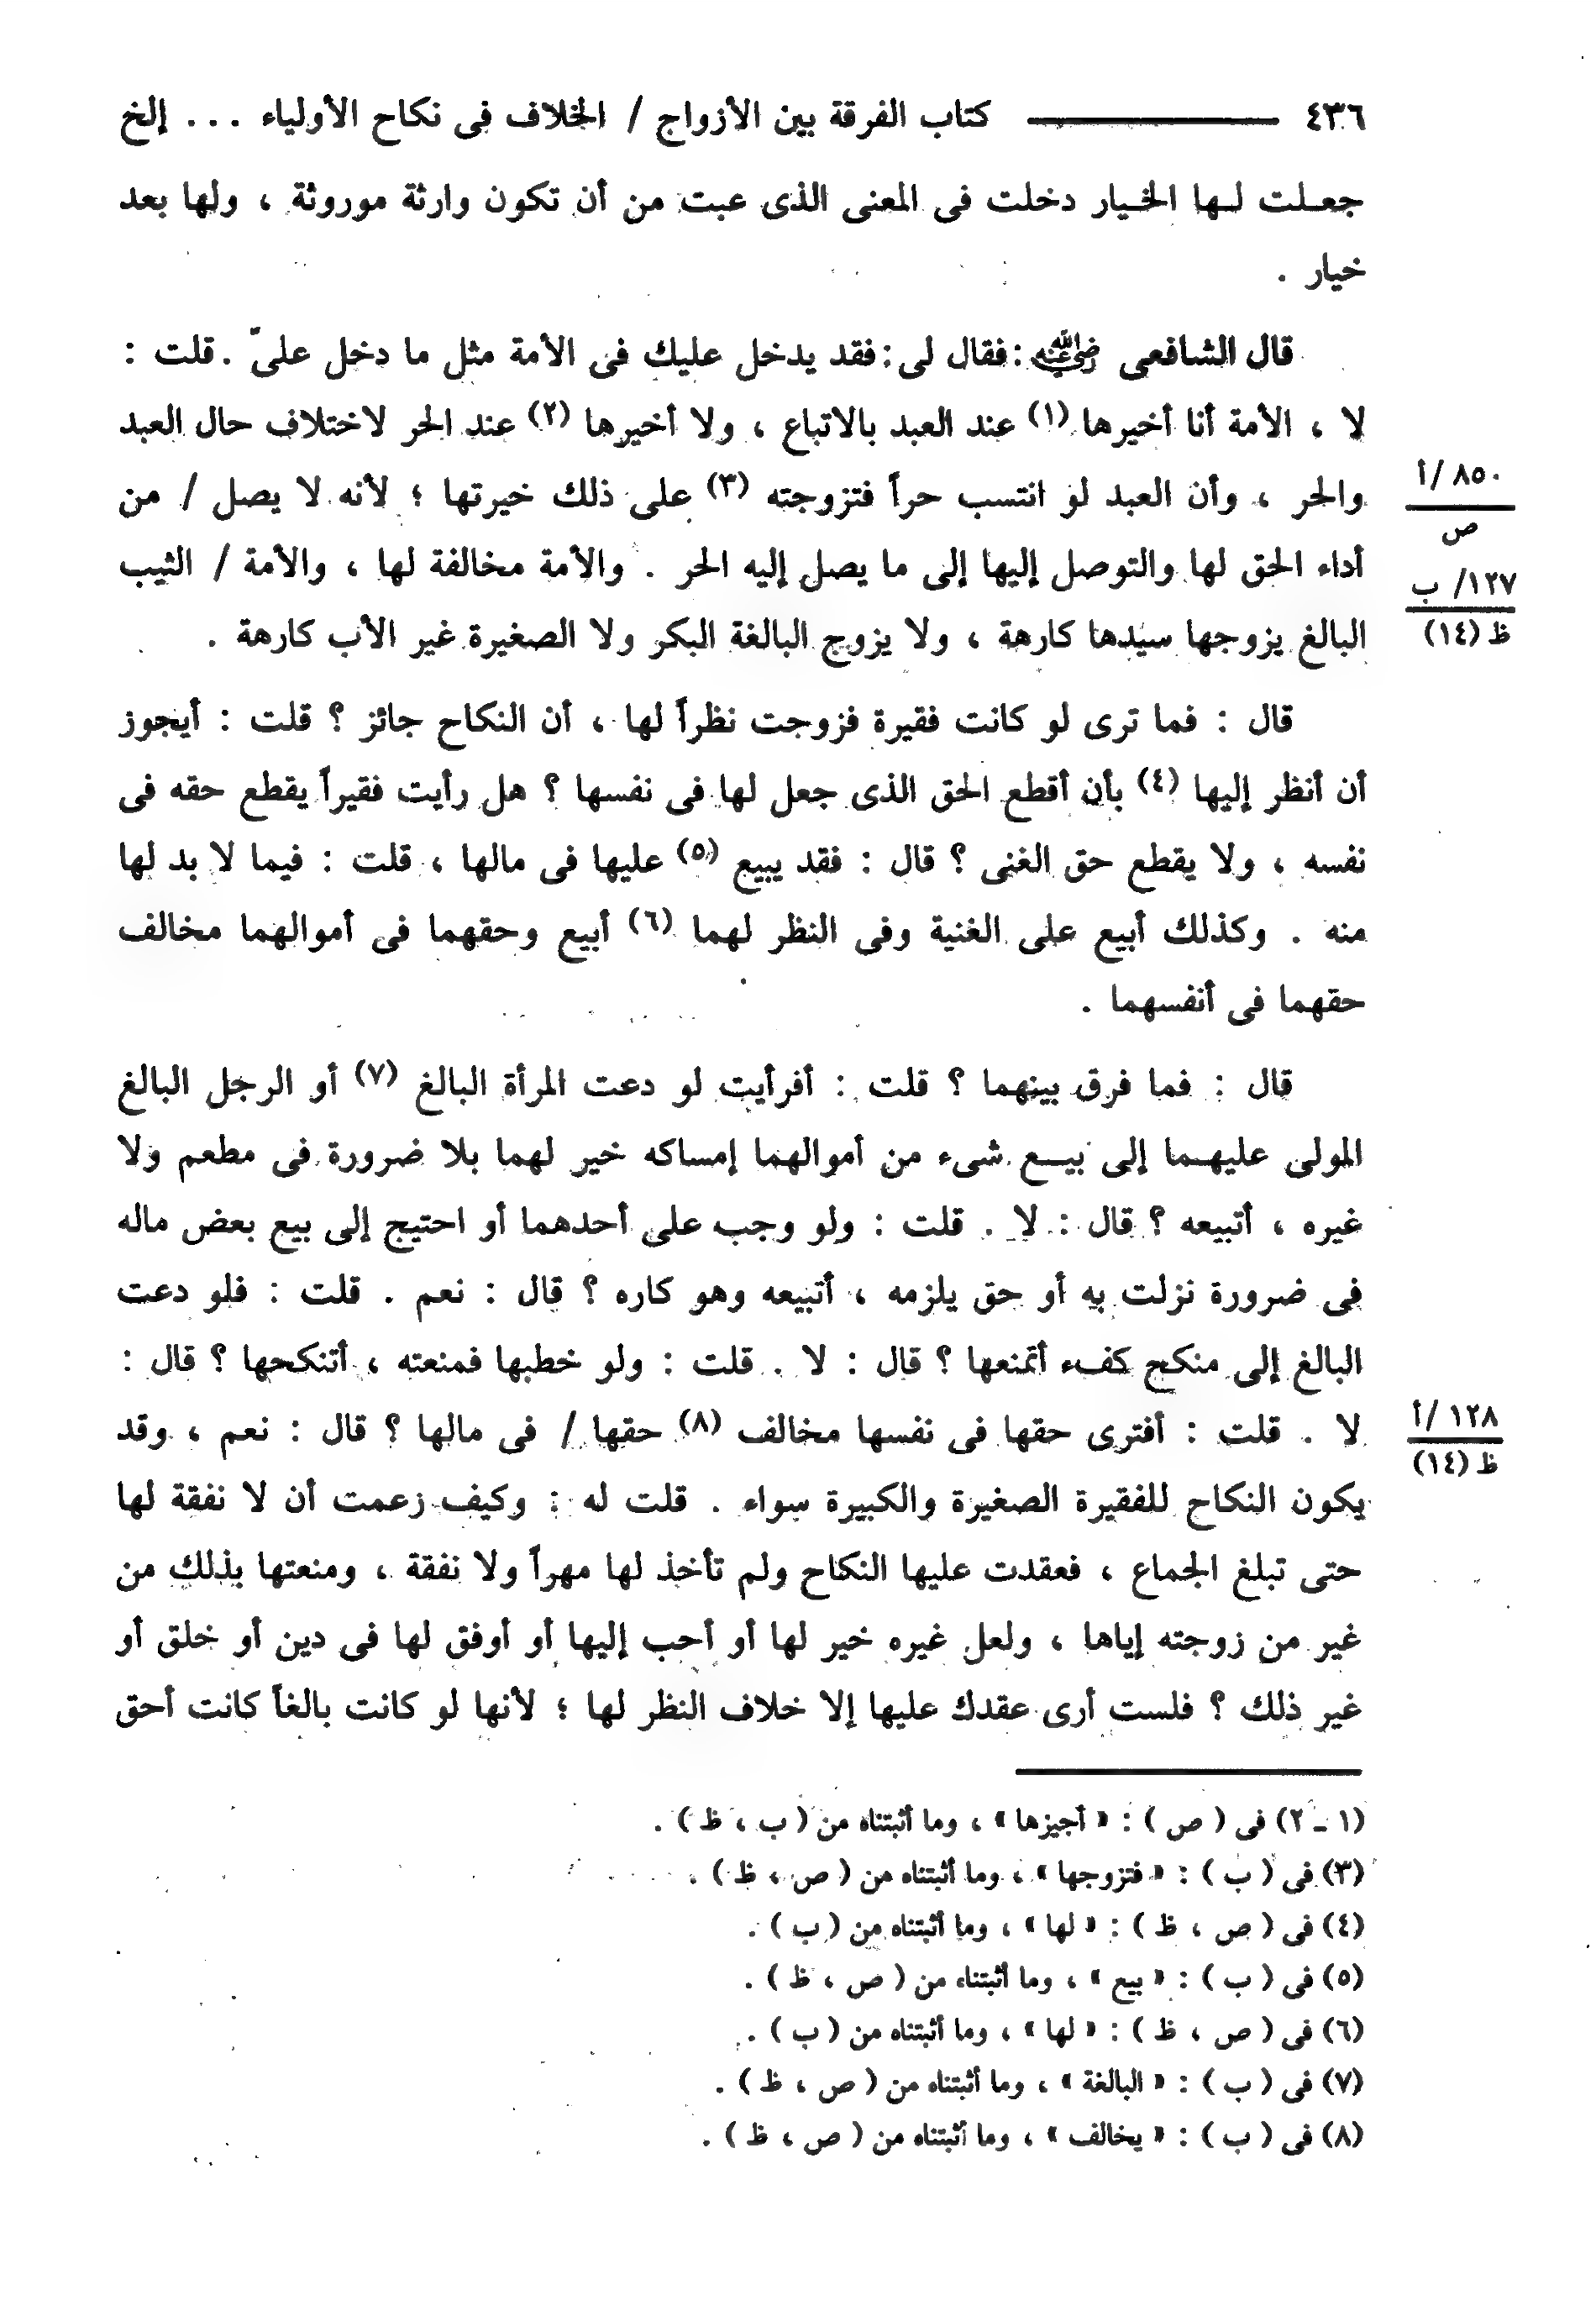 ٤٣٦ ــــــ كتاب الفرقة بين الأزواج / الخلاف فى نكاح الأولياء . . . إلخ
جعـلت لـها الخـيار دخلت فى المعنى الذى عبت من أن تكون وارثة موروثة ، ولها بعد
خيار .
قال الشافعى رضي الله عنه : فقال لى : فقد يدخل عليك فى الأمة مثل ما دخل علىّ . قلت :
لا ، الأمة أنا أخيرها (١) عند العبد بالاتباع ، ولا أخيرها (٢) عند الحر لاختلاف حال العبد
والحر ، وأن العبد لو انتسب حراً فتزوجته (٣) على ذلك خيرتها ؛ لأنه لا يصل / من
٨٥٠ /أ
ص
أداء الحق لها والتوصل إليها إلى ما يصل إليه الحر . والأمة مخالفة لها ، والأمة / الثيب
١٢٧/ ب
ظ (١٤)
البالغ يزوجها سيدها كارهة ، ولا يزوج البالغة البكر ولا الصغيرة غير الأب كارهة .
قال : فما ترى لو كانت فقيرة فزوجت نظراً لها ، أن النكاح جائز ؟ قلت : أيجوز
أن أنظر إليها (٤) بأن أقطع الحق الذى جعل لها فى نفسها ؟ هل رأيت فقيراً يقطع حقه فى
نفسه ، ولا يقطع حق الغنى ؟ قال : فقد يبيع (٥) عليها فى مالها ، قلت : فيما لا بد لها
منه . وكذلك أبيع على الغنية وفى النظر لهما (٦) أبيع وحقهما فى أموالهما مخالف
حقهما فى أنفسهما .
قال : فما فرق بينهما ؟ قلت : أفرأيت لو دعت المرأة البالغ (٧) أو الرجل البالغ
المولى عليهـما إلى بيـــع شىء من أموالهما إمساكه خير لهما بلا ضرورة فى مطعم ولا
غيره ، أتبيعه ؟ قال : لا . قلت : ولو وجب على أحدهما أو احتيج إلى بيع بعض ماله
فى ضرورة نزلت به أو حق يلزمه ، أتبيعه وهو كاره ؟ قال : نعم . قلت : فلو دعت
البالغ إلى منكح كفء أتمنعها ؟ قال : لا . قلت : ولو خطبها فمنعته ، أتنكحها ؟ قال :
لا . قلت : أفترى حقها فى نفسها مخالف (٨) حقها / فى مالها ؟ قال : نعم ، وقد
١٢٨ /أ
ظ (١٤)
يكون النكاح للفقيرة الصغيرة والكبيرة سواء . قلت له : وكيف زعمت أن لا نفقة لها
حتى تبلغ الجماع ، فعقدت عليها النكاح ولم تأخذ لها مهراً ولا نفقة ، ومنعتها بذلك من
غير من زوجته إياها ، ولعل غيره خير لها أو أحب إليها أو أوفق لها فى دين أو خلق أو
غير ذلك ؟ فلست أرى عقدك عليها إلا خلاف النظر لها ؛ لأنها لو كانت بالغاً كانت أحق
(١ ـ ٢) فى ( ص ) : « أجيزها » ، وما أثبتناه من ( ب ، ظ ) .
(٣) فى ( ب ) : « فتزوجها » ، وما أثبتناه من ( ص ، ظ ) .
(٤) فى ( ص ، ظ ) : « لها » ، وما أثبتناه من ( ب ) .
(٥) فى ( ب ) : « بيع » ، وما أثبتناه من ( ص ، ظ ) .
(٦) فى ( ص ، ظ ) : « لها » ، وما أثبتناه من ( ب ) .
(٧) فى ( ب ) : « البالغة » ، وما أثبتناه من ( ص ، ظ ) .
(٨) فى ( ب ) : « يخالف » ، وما أثبتناه من ( ص ، ظ ) .